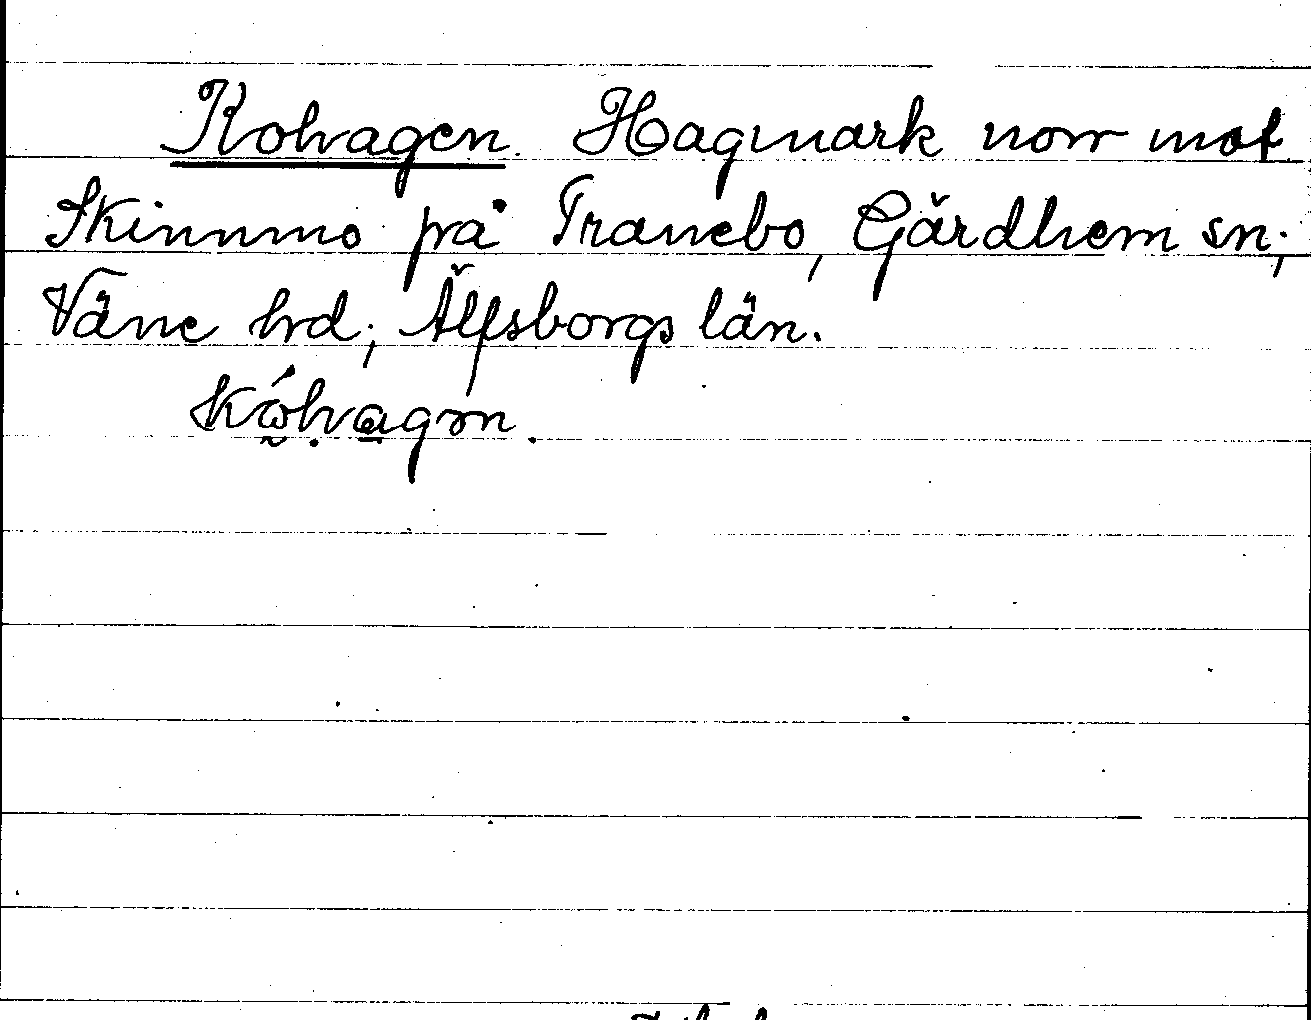 Kohagen. Hagmark norr mot
Skinnmo på Tranebo, Gärdhem sn;
Väne hrd; Älfsborgs län.